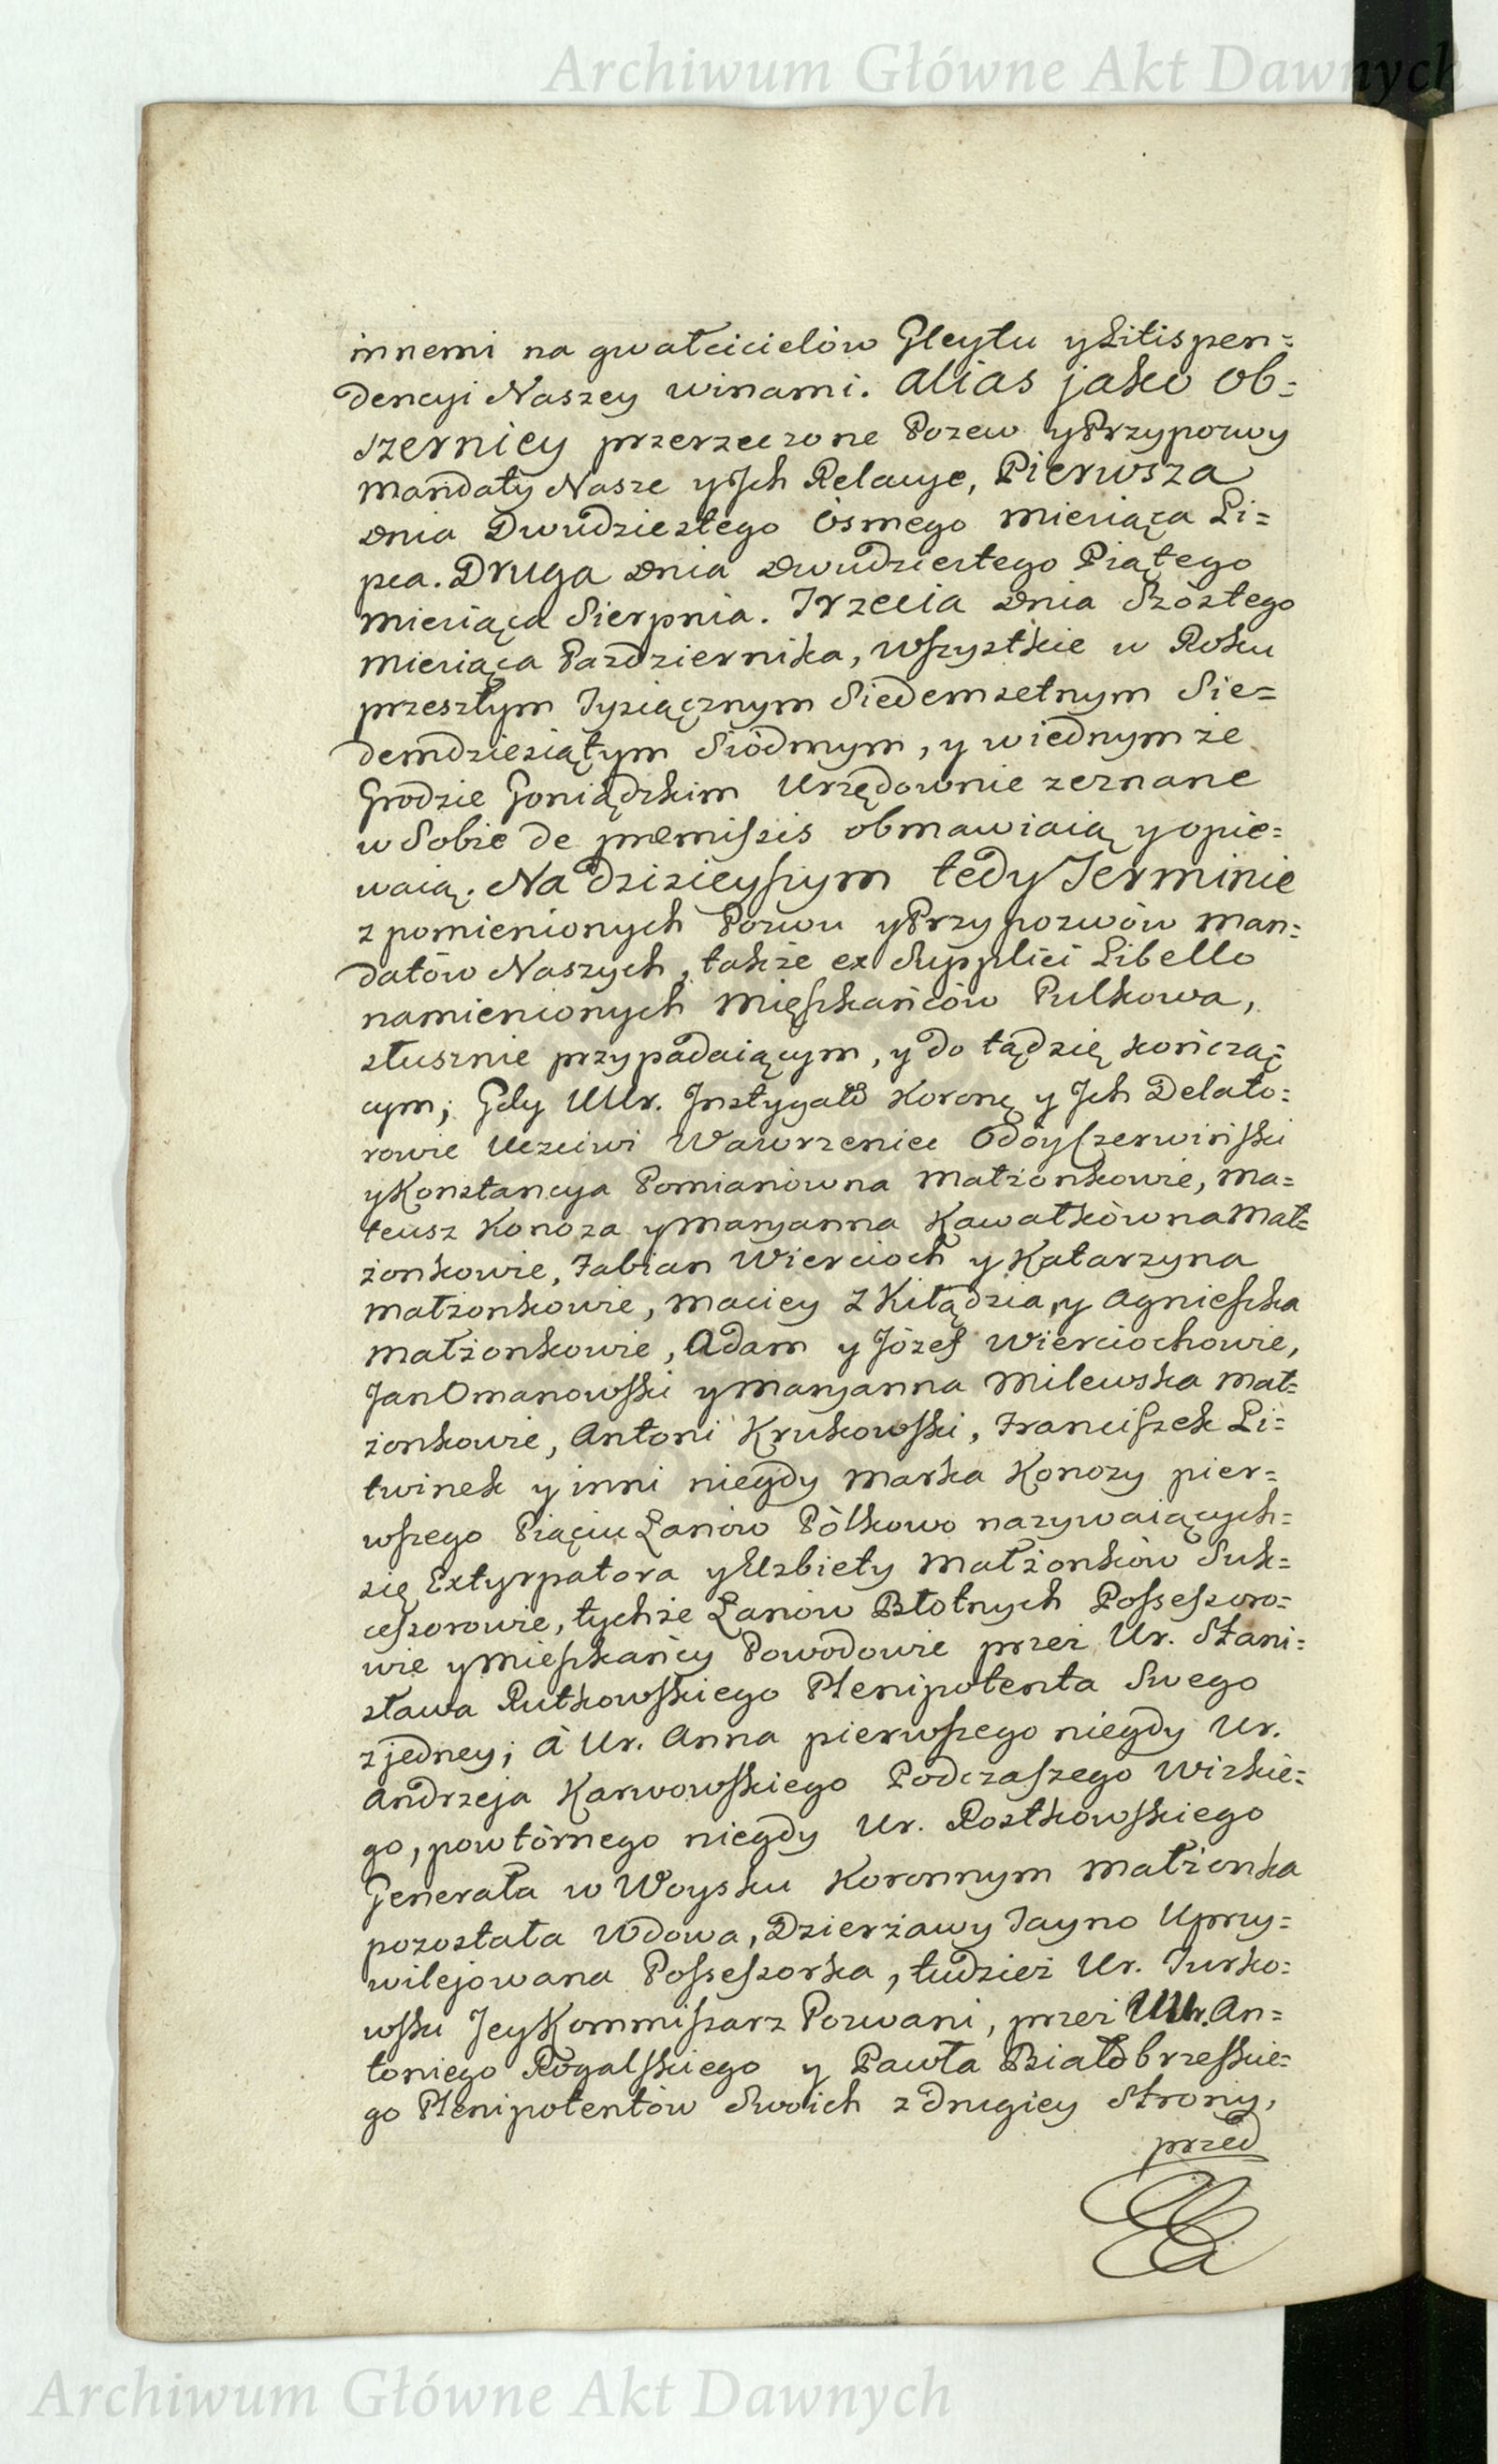 Archiwum Główne Akt Dawnych
innemi na gwałcicielów Gleytu y Litispen=
dencyi Naszey winami. Alias jako ob=
szerniey przerzeczone Pozew y Przypozwy
Mandaty Nasze y Jch Relacye, Pierwsza
dnia Dwudziestego Osmego Miesiąca Li=
pca. Druga dnia dwudziestego Piątego
Miesiąca Sierpnia. Trzecia dnia Szóstego
Miesiąca Pazdziernika, wszystkie w Roku
przeszłym Tysiącznym Siedemsetnym Sie=
demdziesiątym Siódmym, y w iednym że
Grodzie Goniądzkim Urzędownie zeznane
w Sobie de præmissis obmawiaią y opie=
waią. Na dzisieyszym tedy Terminie
z pomienionych Pozwu y Przypozwów Man=
datów Naszych, także ex Supplici Libello
namienionych Mięszkańców Pulkowa,
słusznie przypadaiącym, y do tąd się kończą=
cym; Gdy UUr. Instygato Koronę y Jch Delato=
rowie Uczciwi Wawrzeniec Odoy Czerwiński
y Konstancya Pomianówna Małżonkowie, Ma=
teusz Konoza y Maryanna Kawałkówna Mał=
żonkowie, Fabian Wiercioch y Katarzyna
Małżonkowie, Maciey Z Kiłądzia, y Agnieszka
Małżonkowie, Adam y Józef Wierciochowie,
Jan Omanowski y Maryanna Milewska Mał=
żonkowie, Antoni Krukowski, Franciszek Li=
twinek y inni niegdy Marka Konozy pier=
wszego Pięciu Łanów Pólkowo nazywaiących=
się Extyrpatora y Elzbiety Małżonków Suk=
cessorowie, tychże Łanów Błotnych Possessoro=
wie y Mieszkańcy Powodowie przez Ur. Stani=
sława Rutkowskiego Plenipotenta Swego
z jedney; à Ur. Anna pierwszego niegdy Ur.
Andrzeja Karwowskiego Podczaszego Wizkie=
go, powtórnego niegdy Ur. Rostkowskiego
Generała w Woysku Koronnym Małżonka
pozostała Wdowa, Dzierżawy Tayno Uprzy=
wilejowana Possessorka, tudzież Ur. Turko=
wski Jey Kommissarz Pozwani, przez UUr. An=
toniego Rogalskiego y Pawła Białobrzeskie=
go Plenipotentów Swoich z drugiey Strony,
przed
Archiwum Główne Akt Dawnych